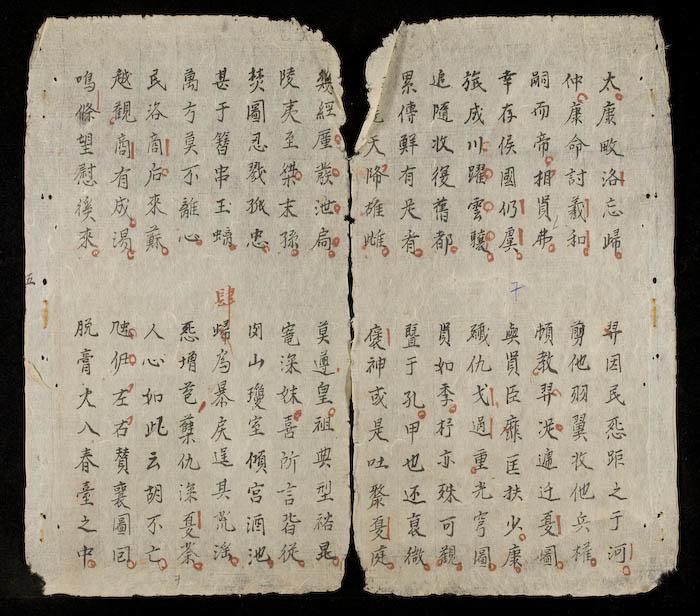 太康畋洛忘歸
羿因民怨距之于河
仲康命討羲和
剪他羽翼收他兵權
嗣而帝相賢弗
頓教羿浞遞迁夏圖
幸存侯國仍虞
與賢臣靡匡扶少康
旅成川躍雲驤
殲仇戈過重光穹圖
追隨收復舊都
賢如季杼亦殊可觀
累傳鮮有足者
曁于孔甲也还衰微
天降雄雌
褒神或是吐漦夏庭
幾經厘發泄扃
莫遵皇祖典型裕昆
陵夷至桀末孫
寵深妹喜所言皆從
焚圖忍戮孤忠
肉山瓊室傾宮酒池
甚于簪串玉
肆
歸為暴戾逞其荒淫
萬方莫不離心
怨增苞蘖仇深夏荼
民洛商后來蘇
人心如此云胡不亡
越觀商有成湯
虺伊左右賛襄圖囬
鳴條望慰徯來
脫膏火入春臺之中
五